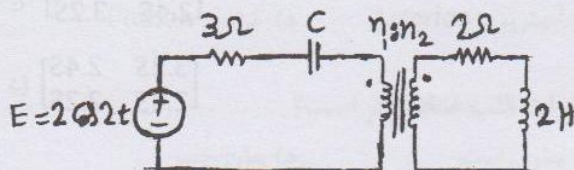 3Ω C n₁:n₂ 2Ω
E=2cos2t + − 2H